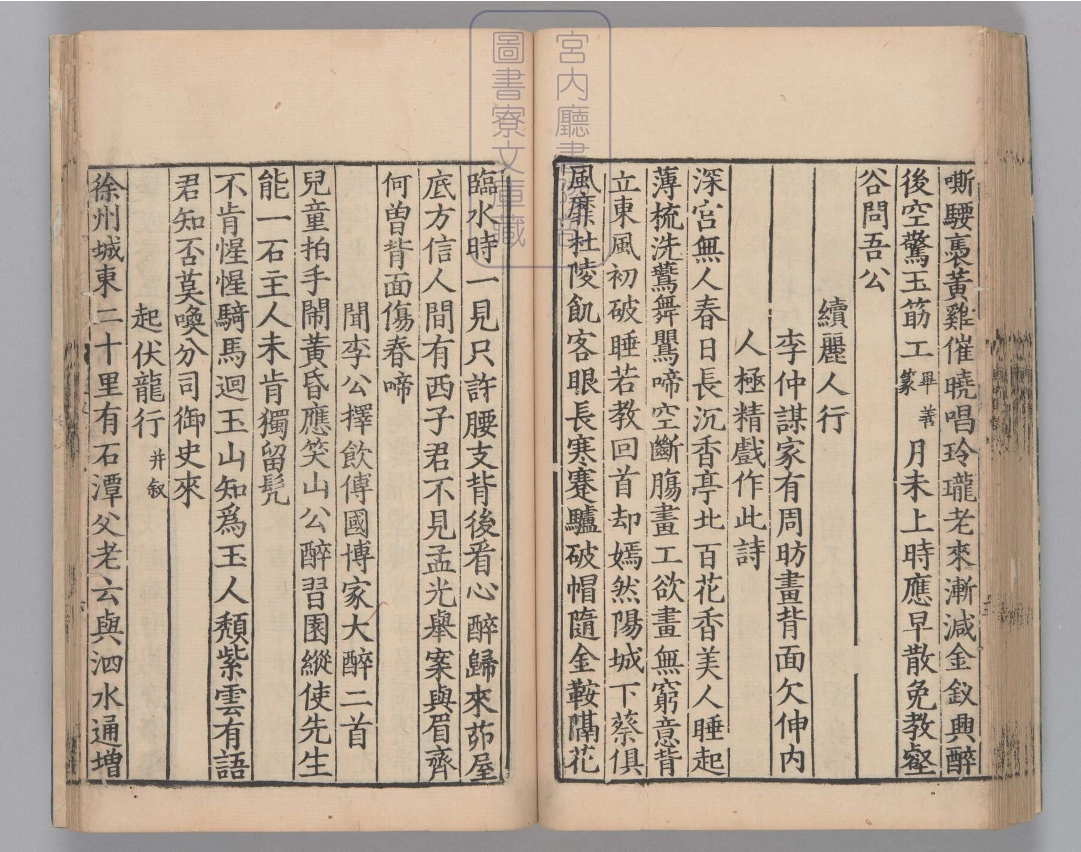 嘶騕褭黃雞催曉唱玲瓏老來漸減金釵興醉
後空驚玉筯工畢善篆月未上時應早散免教壑
谷問吾公
續麗人行
李仲謀家有周昉畫背面欠伸內
人極精戲作此詩
深宮無人春日長沉香亭北百花香美人睡起
薄梳洗鷰舞鸎啼空斷膓畫工欲畫無窮意背
立東風初破睡若教回首却嫣然陽城下蔡俱
風靡杜陵飢客眼長寒蹇驢破帽隨金鞍隔花
臨水時一見只許腰支背後看心醉歸來茆屋
底方信人間有西子君不見孟光舉案與眉齊
何曾背面傷春啼
聞李公擇飲傅國博家大醉二首
兒童拍手閙黃昏應笑山公醉習園縱使先生
能一石主人未肯獨留髠
不肯惺惺騎馬迴玉山知爲玉人頹紫雲有語
君知否莫喚分司御史來
起伏龍行并敘
徐州城東二十里有石潭父老云與泗水通增
宮內廳書陵部
圖書寮文庫藏